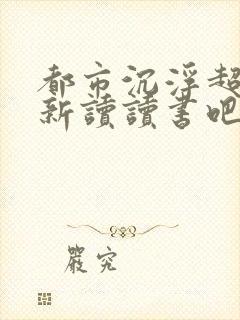 都市沉浮超
新讀讀書吧
嚴究